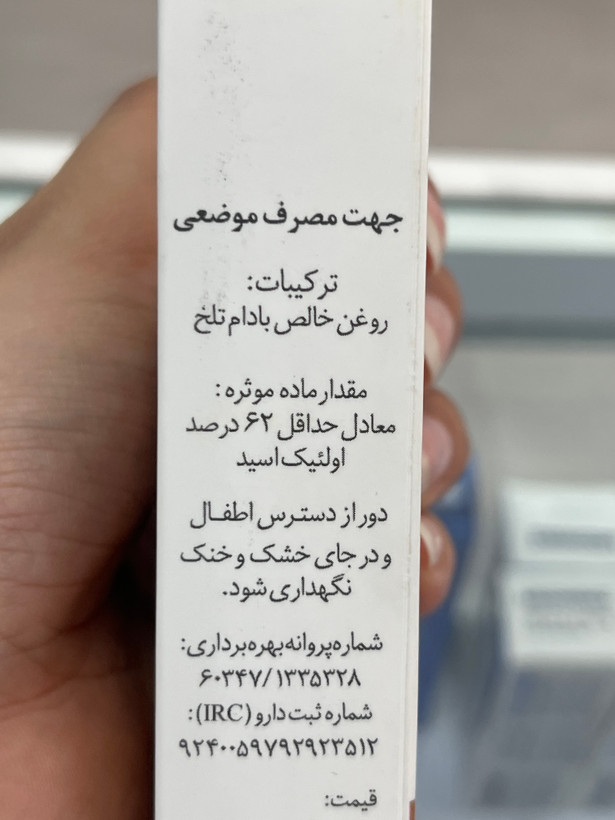 جهت مصرف موضعی
ترکیبات:
روغن خالص بادام تلخ
مقدار ماده موثره:
معادل حداقل ۶۲ درصد
اولئیک اسید
دور از دسترس اطفال
و در جای خشک و خنک
نگهداری شود.
شماره پروانه بهره برداری:
۶۰۳۴۷/۱۳۳۵۳۲۸
شماره ثبت دارو (IRC):
۹۲۴۰۰۵۹۷۹۲۹۲۳۵۱۲
قیمت: